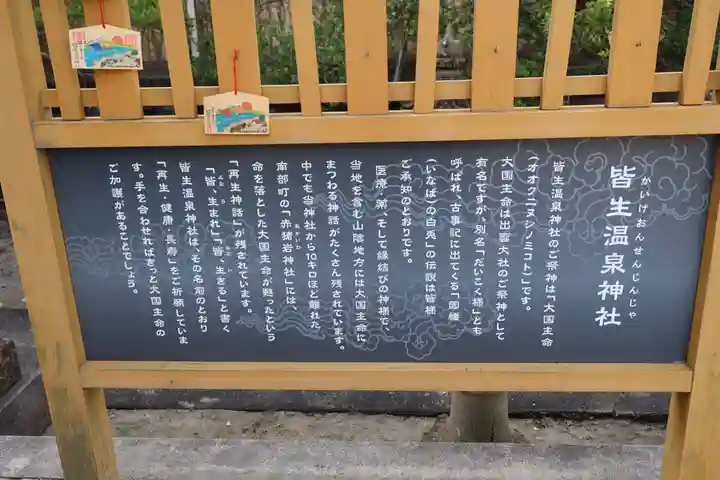 皆生温泉神社
かいけおんせんじんじゃ
皆生温泉神社のご祭神は「大国主命
(オオクニヌシノミコト)」です。
大国主命は出雲大社のご祭神として
有名ですが、別名「だいこく様」とも
呼ばれ、古事記に出てくる「因幡
(いなば)の白兎」の伝説は皆様
ご承知のとおりです。
医療・薬、そして縁結びの神様で、
当地を含む山陰地方には大国主命に
まつわる神話がたくさん残されています。
中でも当神社から10キロほど離れた
南部町の「赤猪岩神社」には、
あかいわ
命を落とした大国主命が甦ったという
「再生神話」が残されています。
「皆、生まれ」「皆、生きる」と書く
皆生温泉神社は、その名前のとおり
「再生・健康・長寿」をご祈願していま
す。手を合わせればきっと大国主命の
ご加護があることでしょう。